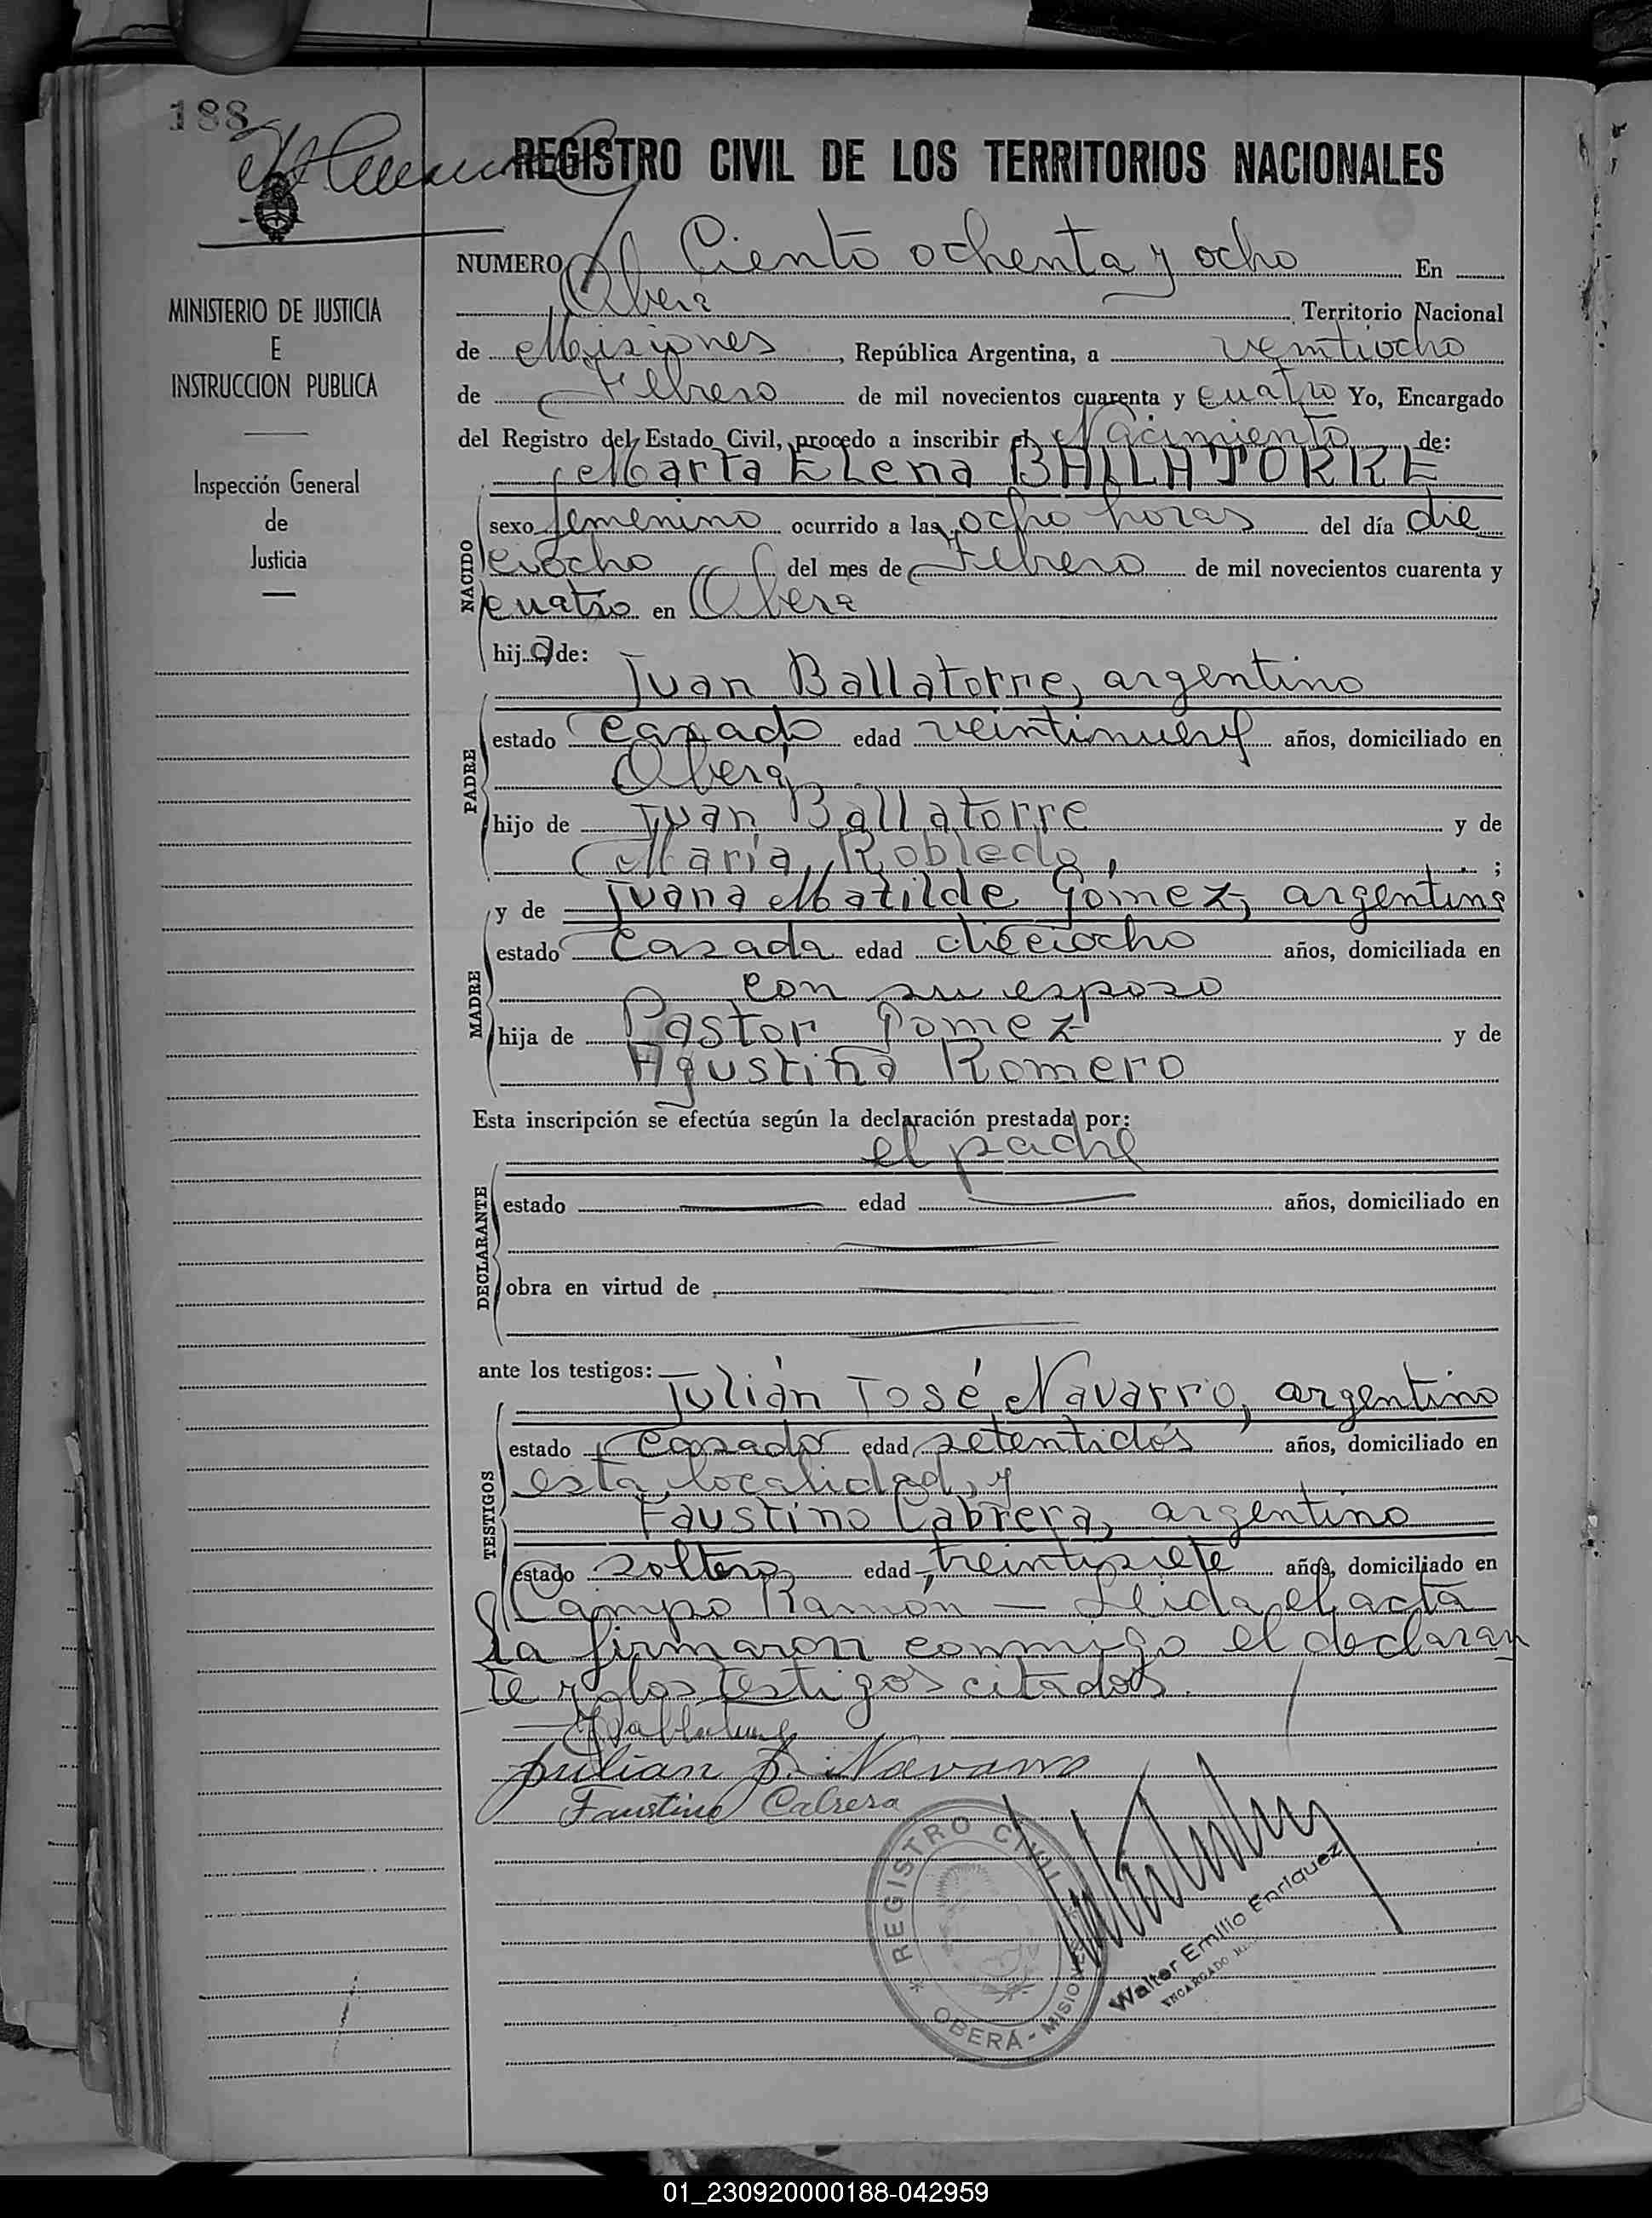 188
REGISTRO CIVIL DE LOS TERRITORIOS NACIONALES
MINISTERIO DE JUSTICIA
E
INSTRUCCION PUBLICA
Inspección General
de
Justicia
NUMERO Ciento ochenta y ocho En
Oberá Territorio Nacional
de Misiones, República Argentina, a veintiocho
de Febrero de mil novecientos cuarenta y cuatro Yo, Encargado
del Registro del Estado Civil, procedo a inscribir el Nacimiento de:
Marta Elena BALLATORRE
NACIDO
sexo femenino ocurrido a las ocho horas del día die
ciocho del mes de Febrero de mil novecientos cuarenta y
cuatro en Oberá
hija de:
Juan Ballatorre, argentino
PADRE
estado casado edad veintinueve años, domiciliado en
Oberá,
hijo de Juan Ballatorre y de
María Robledo, ;
y de Juana Matilde Gómez, argentina
MADRE
estado casada edad dieciocho años, domiciliada en
con su esposo
hija de Pastor Gomez y de
Agustina Romero
Esta inscripción se efectúa según la declaración prestada por:
el padre
DECLARANTE
estado edad años, domiciliado en
obra en virtud de
ante los testigos:
Julián José Navarro, argentino
TESTIGOS
estado casado edad setentidós años, domiciliado en
esta localidad, y
Faustino Cabrera, argentino
estado soltero edad treintisiete años, domiciliado en
Campo Ramón — Leída el acta
la firmaron conmigo el declaran
te y los testigos citados.
Julian J. Navarro
Faustino Cabrera
REGISTRO CIVIL
OBERÁ - MISIONES
Walter Emilio Enriquez
ENCARGADO
01_230920000188-042959